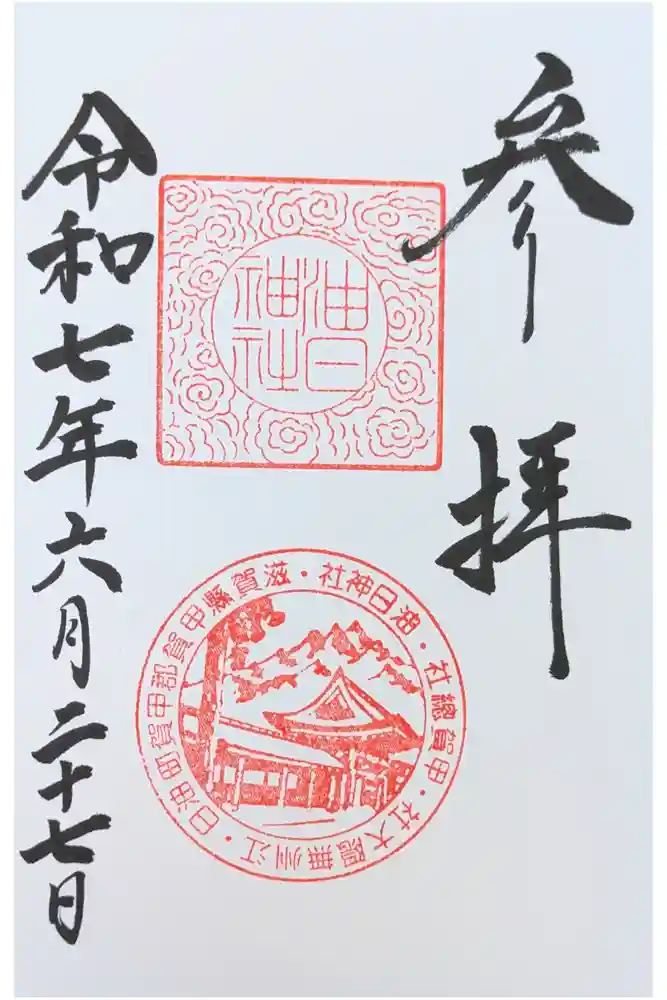 参拝
油日
神社
油日神社・滋賀縣甲賀郡甲賀町油日・江州無隅大社・甲賀總社・
令和七年六月二十七日